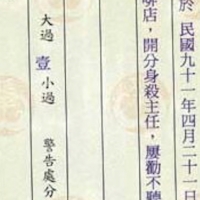 於 民國九十一年四月二十一日
店，開分身殺主任，屢勸不聽
大過 壹 小過 警告處分